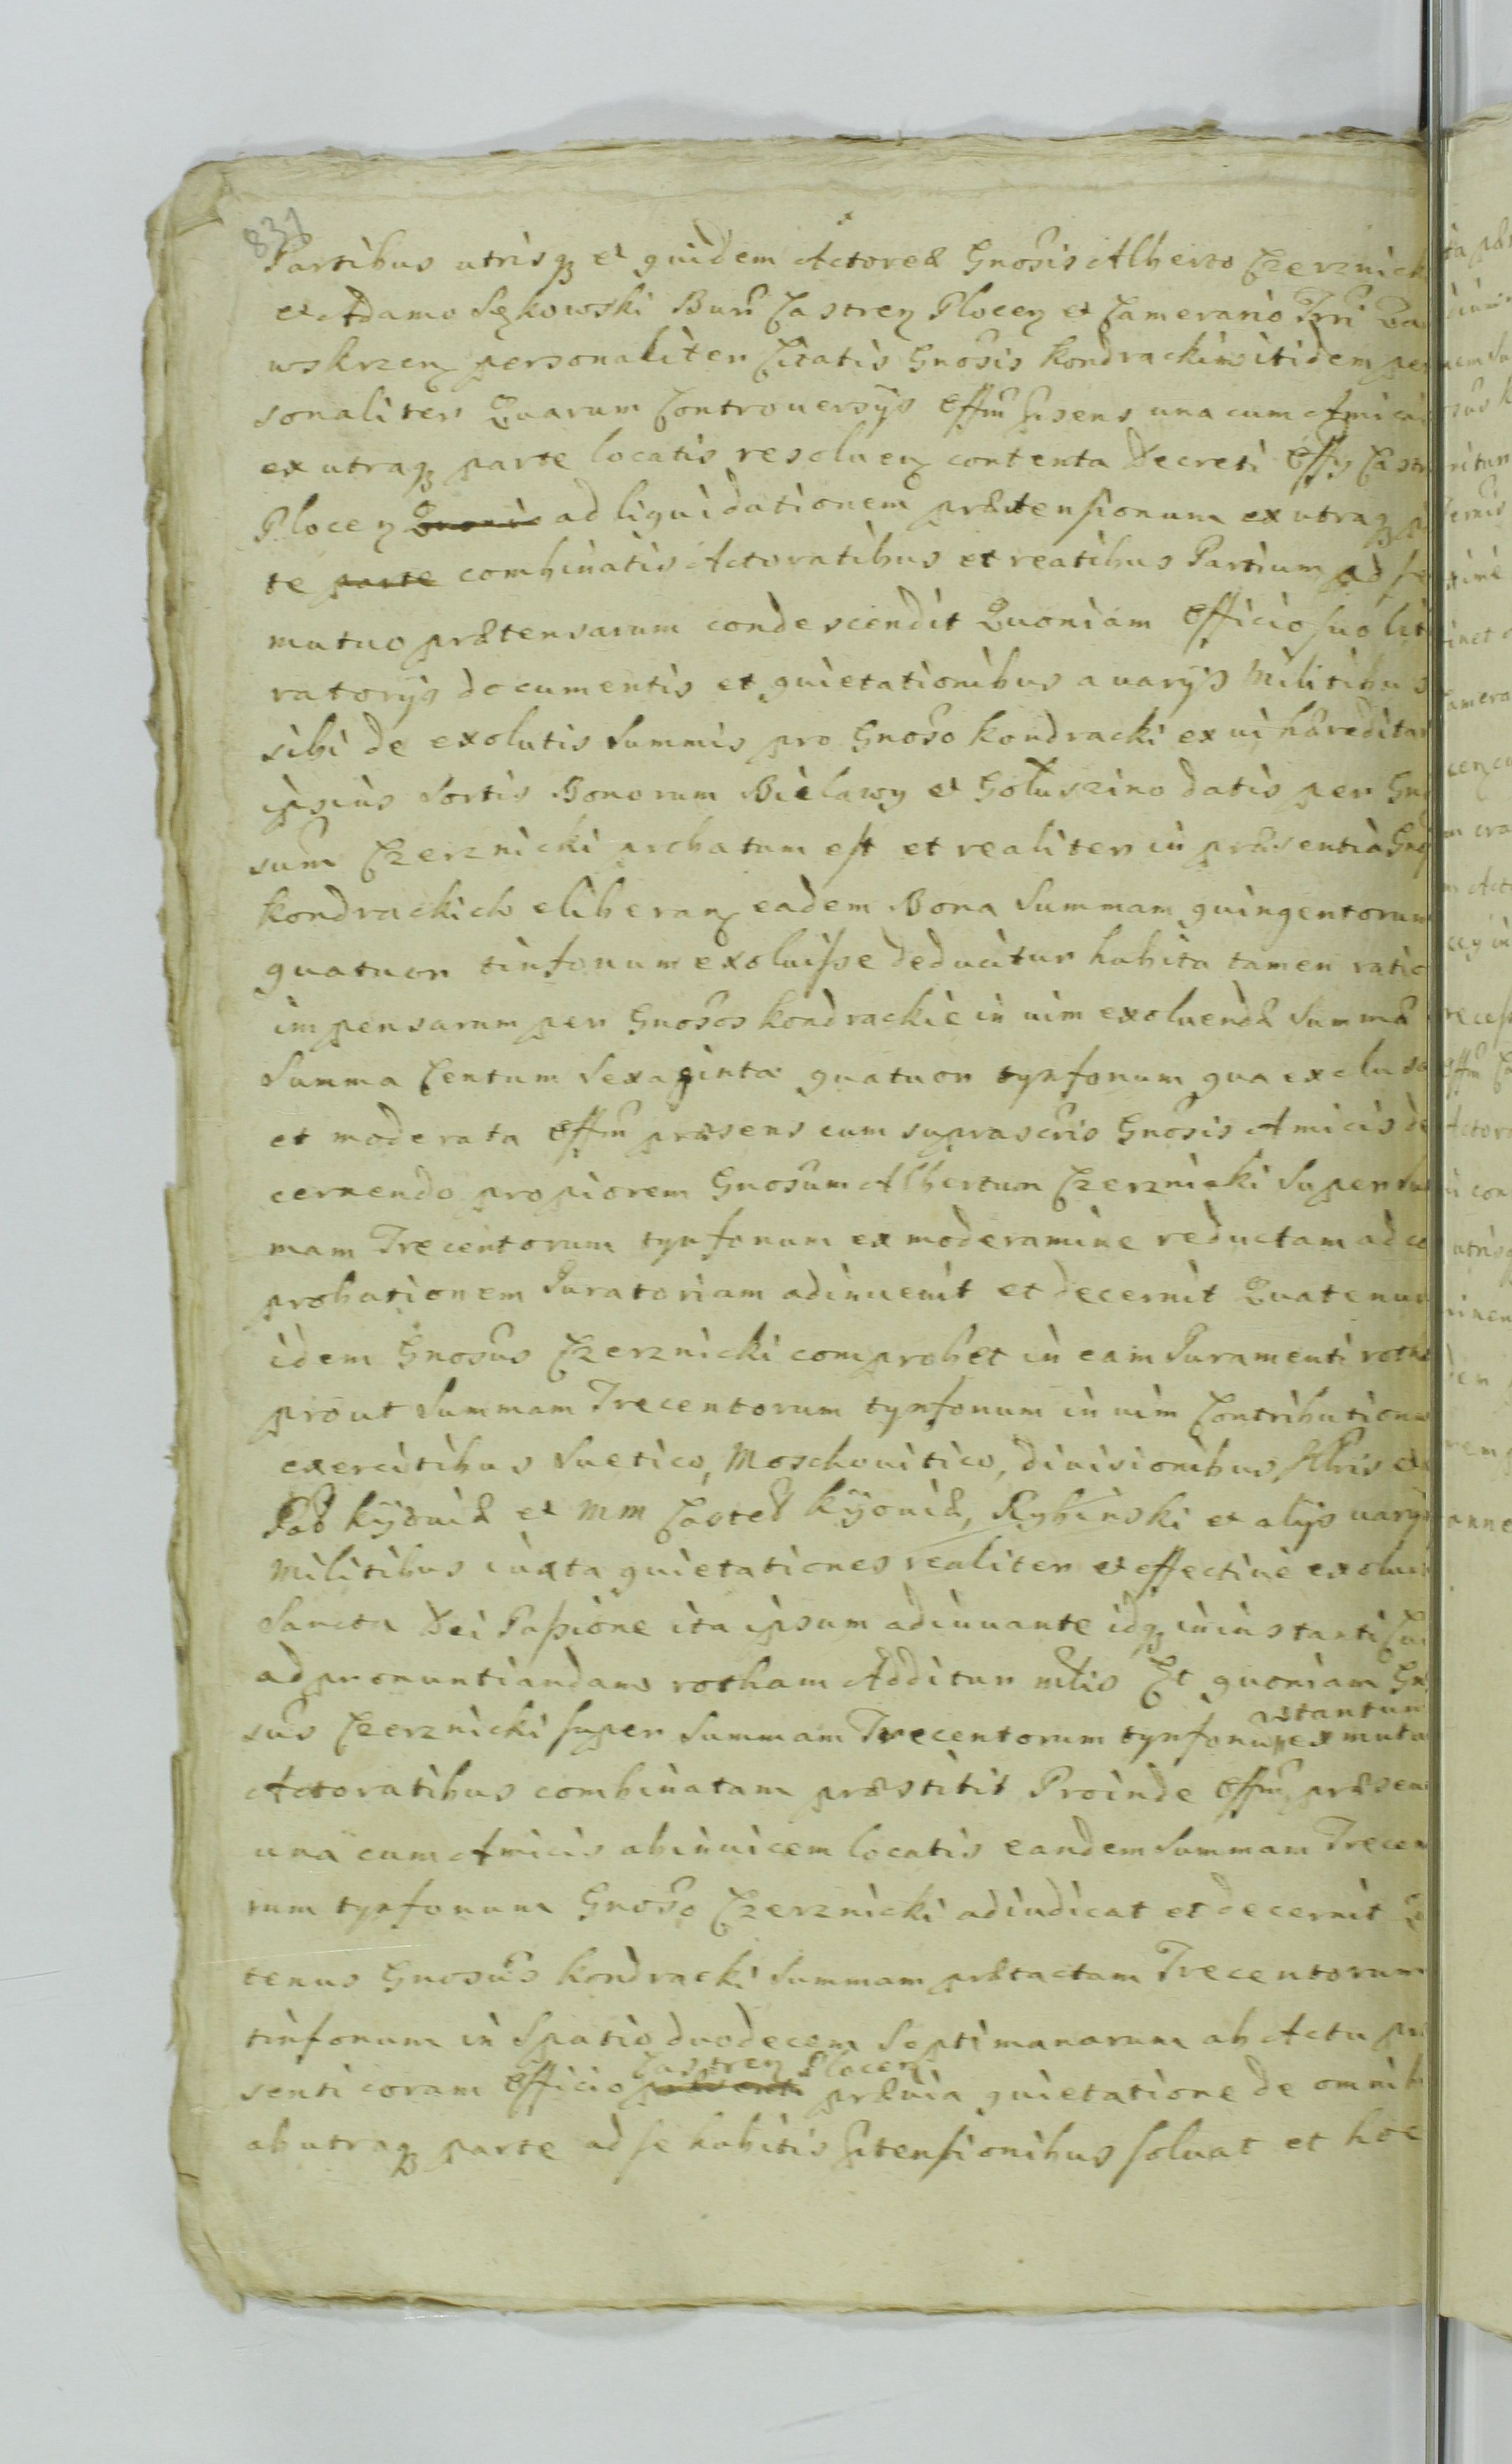 831
Partibus utrisq et quidem Actoreæ Gnosis Alberto Czerznick
et Adamo Sękowski Burř Castren Plocen et Camerario Trři Za
wskrzen personaliter Citatis Gnosis Kondrackim itidem per
sonaliter Quarum Controuersijs Offm Psens una cum Amicis
ex utraq parte locatis resoluen contenta Decreti Offy Castr
Plocen ad liquidationem prætensionum ex utraq p
te parte combinatis Actoratibus et reatibus Partium ad se
mutuo prætensarum condescendit Quoniam Officio suo lit
ratorijs documentis et quietationibus a varijs Militibus
sibi de exolutis Summis pro Gnoso Kondracki ex vi hæreditar
ipsius Sortis Bonorum Bielawy et Gołuszino datis per Gno
sum Czerznicki probatum est et realiter in præsentia Gnos
Kondrackich eliberan eadem Bona Summam quingentorum
quatuor tinfonum exoluisse deducitur habita tamen ratio
impensarum per Gnosos Kondrackie in vim exoluendæ Summæ
Summa Centum Sexaginta quatuor tynfonum qua exclusa
et moderata Offm præsens cum suprascris Gnosis Amicis de
cernendo propiorem Gnosum Albertum Czerznicki Super Su
mam Trecentorum tynfonum ex moderamine reductam ad co
probationem Juratoriam adinuenit et decernit Quatenus
idem Gnosus Czerznicki comprobet in eam Juramenti rotha
prout Summam Trecentorum tynfonum in vim Contributionum
exercitibus Suetico, Moschouitico, diuisionibus, Illris et
Pad Kijouiæ et MM Castel Kijouiæ, Rybinski et alijs varijs
Militibus iuxta quietationes realiter et effectiue exolui
Sancta Dei Passione ita ipsum adiuuante idq in instanti Cui
ad pronuntiandam rotham Additur mlis Et quoniam Gno
sus Czerznicki super Summam Trecentorum tynfonum tantum ex mutu
Actoratibus combinatam præstitit Proinde Offm præsens
una cum Amicis abinuicem locatis eandem Summam Trecen
rum tynfonum Gnoso Czerznicki adiudicat et decernit Q
tenus Gnosus Kondracki Summam prætactam Trecentorum
tinfonum in Spatio duodecem Septimanarum ab Actu pr
senti coram Officio præsenti Castren Plocen prævia quietatione de omnib
ab utraq parte ad se habitis Ptensionibus soluat et hoc